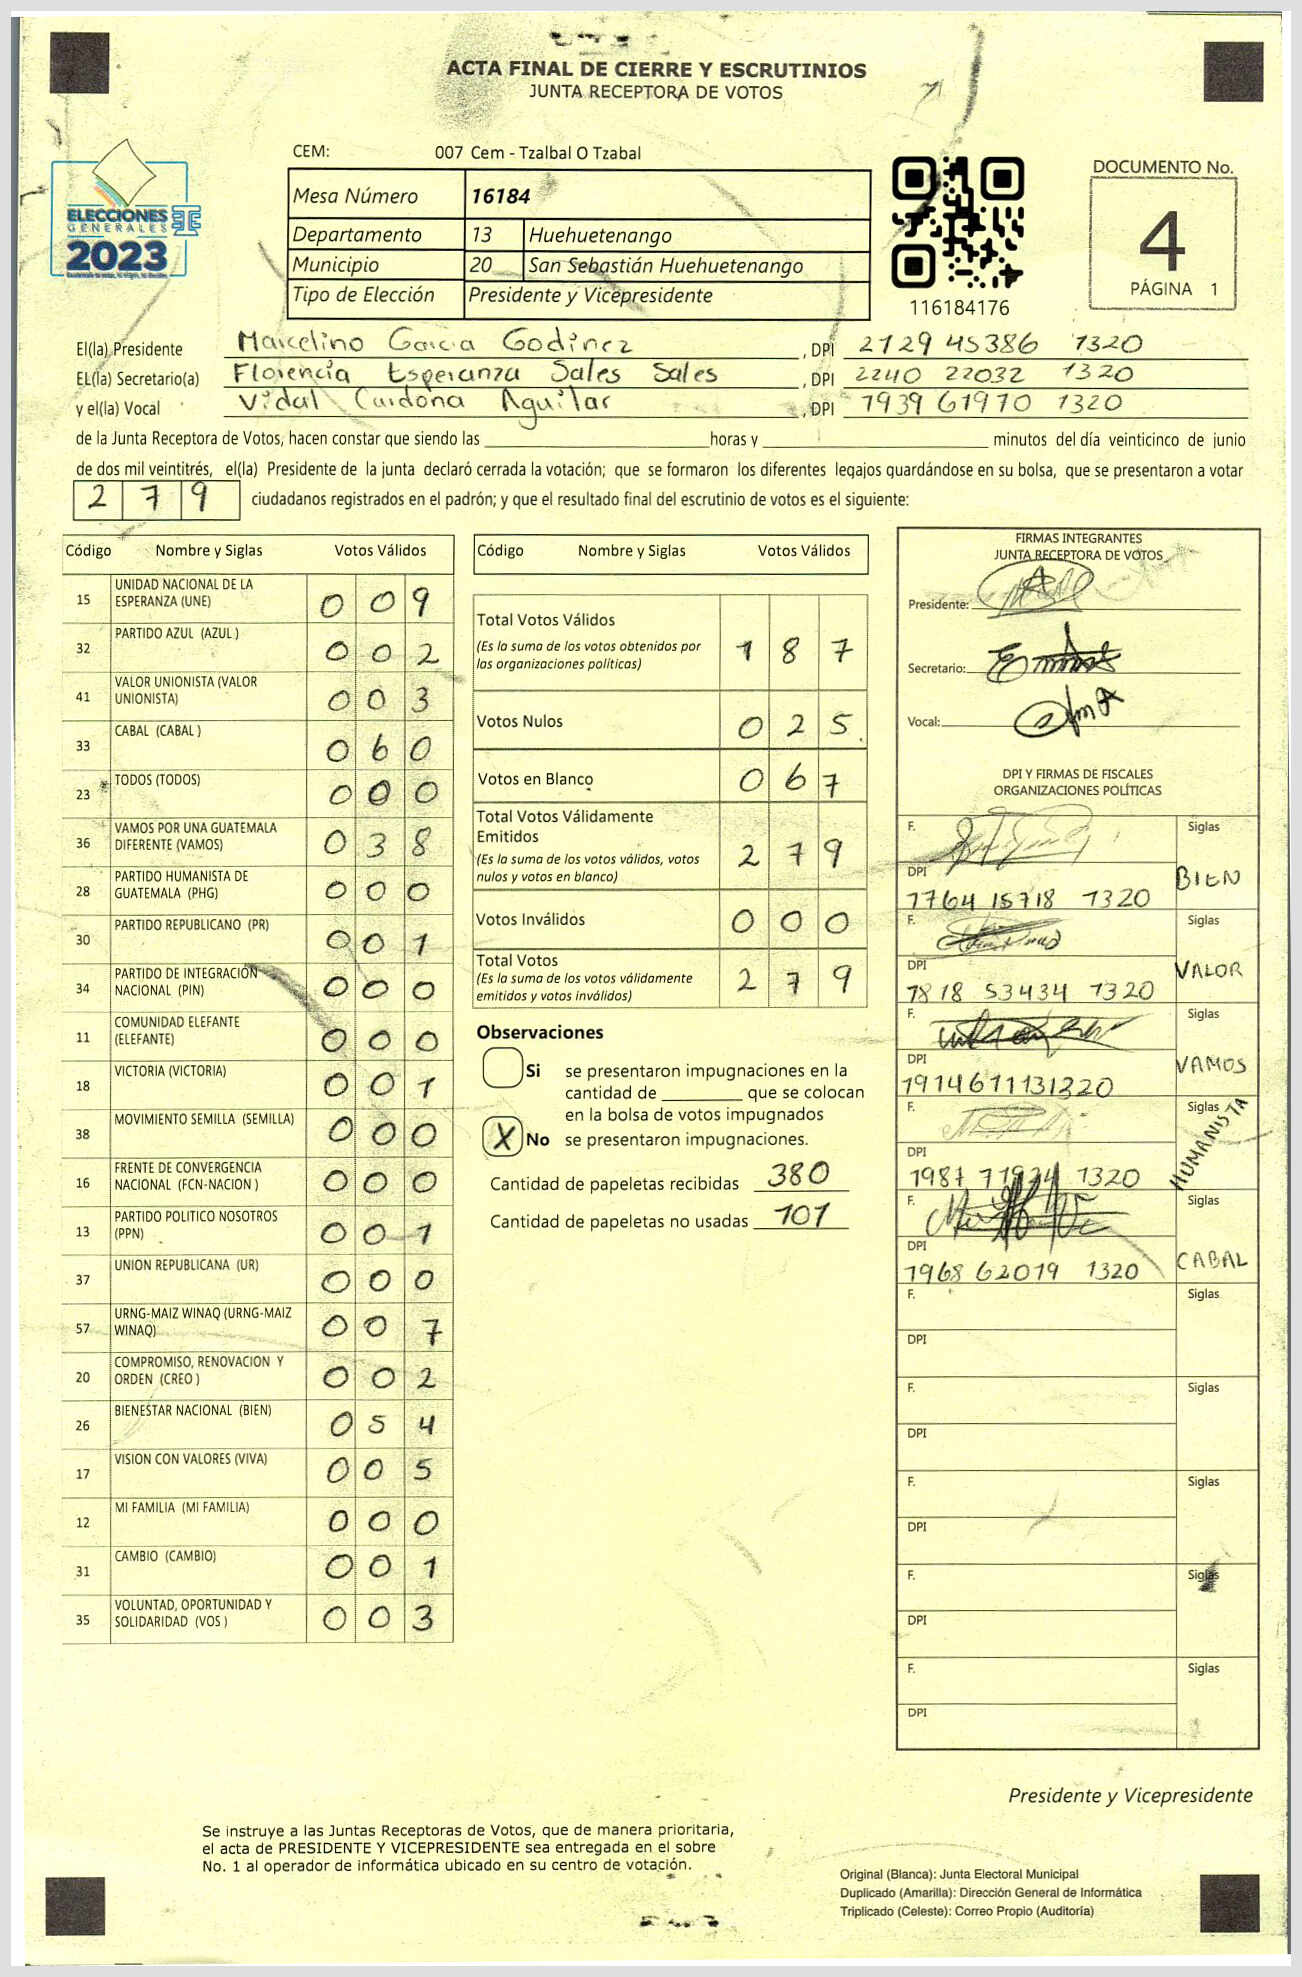 ACTA FINAL DE CIERRE Y ESCRUTINIOS
JUNTA RECEPTORA DE VOTOS
CEM: 007 Cem - Tzalbal O Tzabal
Mesa Número 16184
Departamento 13 Huehuetenango
Municipio 20 San Sebastián Huehuetenango
Tipo de Elección Presidente y Vicepresidente
ELECCIONES
GENERALES
2023
116184176
DOCUMENTO No.
4
PÁGINA 1
El(la) Presidente Marcelino Garcia Godinez , DPI 2129 45386 1320
EL(la) Secretario(a) Florencia Esperanza Sales Sales , DPI 2240 22032 1320
y el(la) Vocal Vidal Cardona Aguilar , DPI 1939 61970 1320
de la Junta Receptora de Votos, hacen constar que siendo las horas y minutos del día veinticinco de junio
de dos mil veintitrés, el(la) Presidente de la junta declaró cerrada la votación; que se formaron los diferentes legajos guardándose en su bolsa, que se presentaron a votar
279 ciudadanos registrados en el padrón; y que el resultado final del escrutinio de votos es el siguiente:
Código Nombre y Siglas Votos Válidos
15 UNIDAD NACIONAL DE LA
ESPERANZA (UNE) 0 0 9
32 PARTIDO AZUL (AZUL ) 0 0 2
41 VALOR UNIONISTA (VALOR
UNIONISTA) 0 0 3
33 CABAL (CABAL ) 0 6 0
23 TODOS (TODOS) 0 0 0
36 VAMOS POR UNA GUATEMALA
DIFERENTE (VAMOS) 0 3 8
28 PARTIDO HUMANISTA DE
GUATEMALA (PHG) 0 0 0
30 PARTIDO REPUBLICANO (PR) 0 0 1
34 PARTIDO DE INTEGRACIÓN
NACIONAL (PIN) 0 0 0
11 COMUNIDAD ELEFANTE
(ELEFANTE) 0 0 0
18 VICTORIA (VICTORIA) 0 0 1
38 MOVIMIENTO SEMILLA (SEMILLA) 0 0 0
16 FRENTE DE CONVERGENCIA
NACIONAL (FCN-NACION ) 0 0 0
13 PARTIDO POLITICO NOSOTROS
(PPN) 0 0 1
37 UNION REPUBLICANA (UR) 0 0 0
57 URNG-MAIZ WINAQ (URNG-MAIZ
WINAQ) 0 0 7
20 COMPROMISO, RENOVACION Y
ORDEN (CREO ) 0 0 2
26 BIENESTAR NACIONAL (BIEN) 0 5 4
17 VISION CON VALORES (VIVA) 0 0 5
12 MI FAMILIA (MI FAMILIA) 0 0 0
31 CAMBIO (CAMBIO) 0 0 1
35 VOLUNTAD, OPORTUNIDAD Y
SOLIDARIDAD (VOS ) 0 0 3
Código Nombre y Siglas Votos Válidos
Total Votos Válidos
(Es la suma de los votos obtenidos por
las organizaciones políticas) 1 8 7
Votos Nulos 0 2 5
Votos en Blanco 0 6 7
Total Votos Válidamente
Emitidos
(Es la suma de los votos válidos, votos
nulos y votos en blanco) 2 7 9
Votos Inválidos 0 0 0
Total Votos
(Es la suma de los votos válidamente
emitidos y votos inválidos) 2 7 9
Observaciones
Si se presentaron impugnaciones en la
cantidad de que se colocan
en la bolsa de votos impugnados
X No se presentaron impugnaciones.
Cantidad de papeletas recibidas 380
Cantidad de papeletas no usadas 101
FIRMAS INTEGRANTES
JUNTA RECEPTORA DE VOTOS
Presidente:
Secretario:
Vocal:
DPI Y FIRMAS DE FISCALES
ORGANIZACIONES POLÍTICAS
F. Siglas
BIEN
DPI
1764 15718 1320
F. Siglas
VALOR
DPI
1818 53434 1320
F. Siglas
VAMOS
DPI
1914611131320
F. Siglas
HUMANISTA
DPI
1987 1320
F. Siglas
CABAL
DPI
1968 62019 1320
F. Siglas
DPI
F. Siglas
DPI
F. Siglas
DPI
F. Siglas
DPI
F. Siglas
DPI
Presidente y Vicepresidente
Se instruye a las Juntas Receptoras de Votos, que de manera prioritaria,
el acta de PRESIDENTE Y VICEPRESIDENTE sea entregada en el sobre
No. 1 al operador de informática ubicado en su centro de votación.
Original (Blanca): Junta Electoral Municipal
Duplicado (Amarilla): Dirección General de Informática
Triplicado (Celeste): Correo Propio (Auditoría)